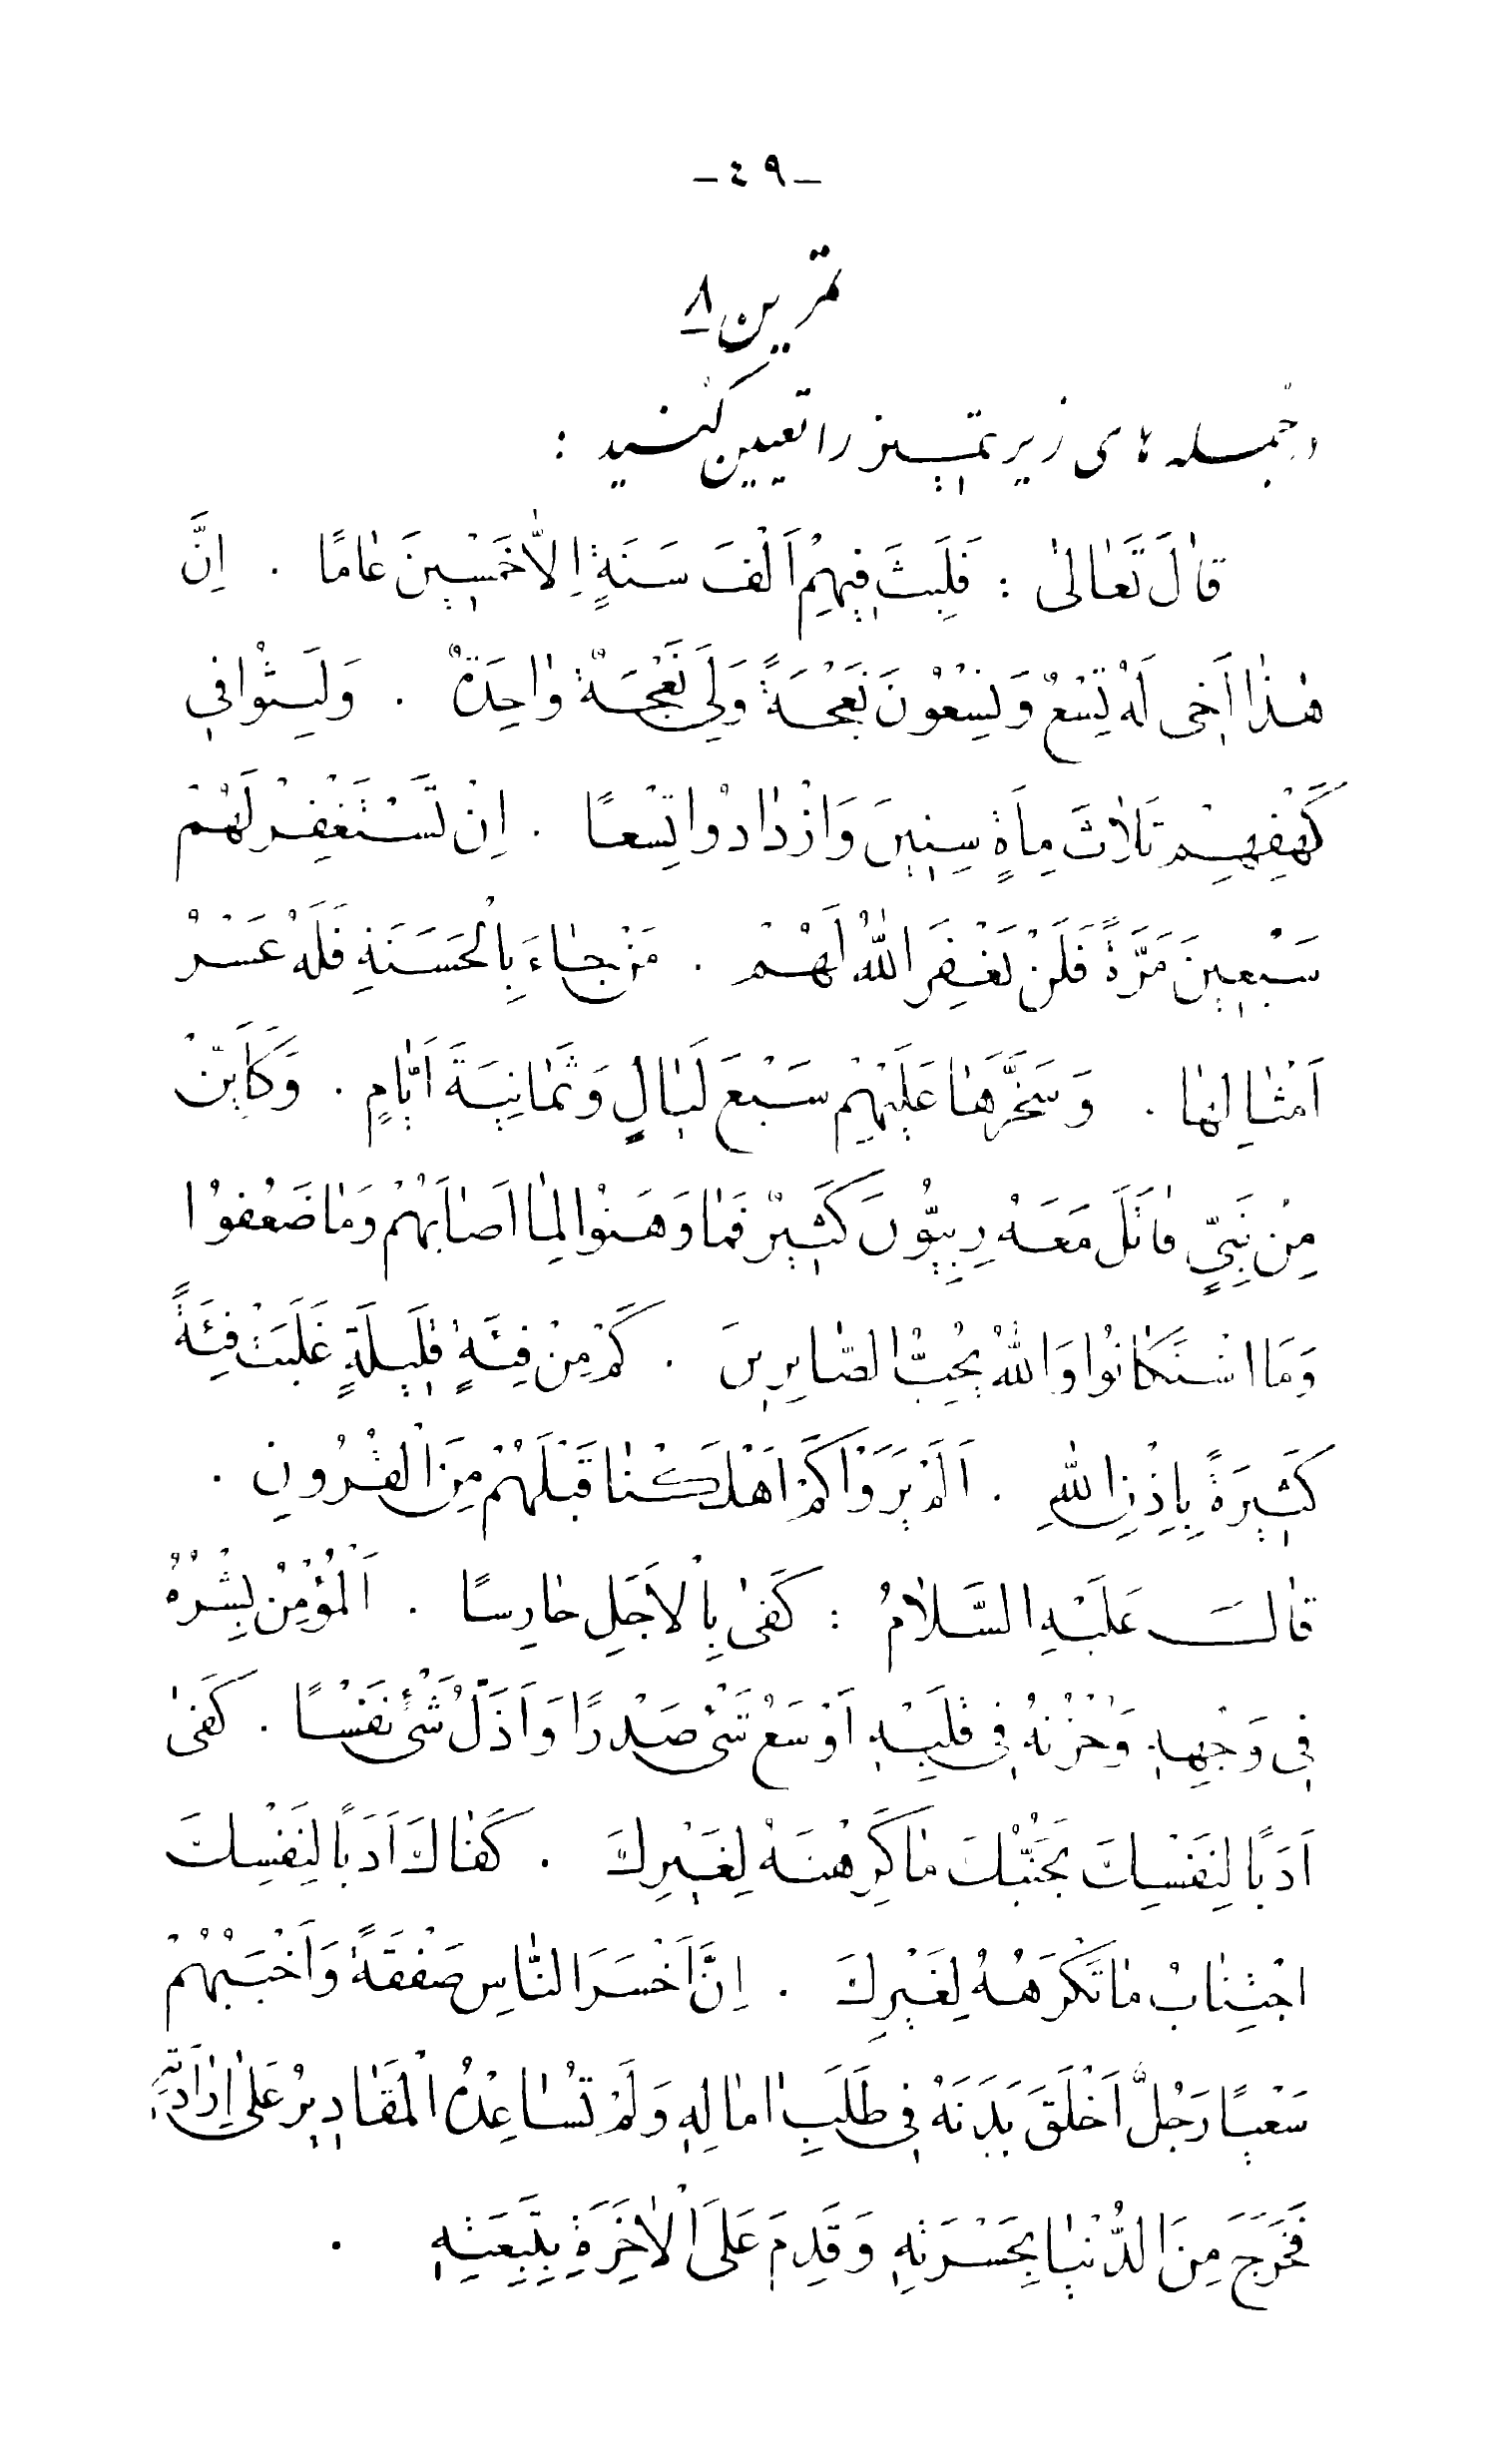 -٤٩-
تمرین ٨
در جمله های زیر تمییز را تعیین کنید :
قٰالَ تَعٰالىٰ : فَلَبِثَ فِيهِمْ اَلْفَ سَنَةٍ اِلاّٰ خَمْسِينَ عٰامًا . اِنَّ
هٰذٰا اَخِى لَهُ تِسْعٌ وَ تِسْعُونَ نَعْجَةً وَ لِيَ نَعْجَةٌ وٰاحِدَةٌ . وَ لَبِثُوا فِي
كَهْفِهِمْ ثَلاٰثَ مِاَةٍ سِنِينَ وَ ازْدٰادُوا تِسْعًا . اِنْ تَسْتَغْفِرْ لَهُمْ
سَبْعِينَ مَرَّةً فَلَنْ يَغْفِرَ اللّٰهُ لَهُمْ . مَنْ جٰاءَ بِالْحَسَنَةِ فَلَهُ عَشْرُ
اَمْثٰالِهٰا . وَ سَخَّرَهٰا عَلَيْهِمْ سَبْعَ لَيٰالٍ وَ ثَمٰانِيَةَ اَيّٰامٍ . وَ كَاَيِّنْ
مِنْ نَبِيٍّ قٰاتَلَ مَعَهُ رِبِّيُّونَ كَثِيرٌ فَمٰا وَهَنُوا لِمٰا اَصٰابَهُمْ وَ مٰا ضَعُفُوا
وَ مَا اسْتَكٰانُوا وَ اللّٰهُ يُحِبُّ الصّٰابِرِينَ . كَمْ مِنْ فِئَةٍ قَلِيلَةٍ غَلَبَتْ فِئَةً
كَثِيرَةً بِاِذْنِ اللّٰهِ . اَلَمْ يَرَوْا كَمْ اَهْلَكْنٰا قَبْلَهُمْ مِنَ الْقُرُونِ .
قٰالَ عَلَيْهِ السَّلاٰمُ : كَفىٰ بِالْاَجَلِ حٰارِسًا . اَلْمُؤْمِنُ بِشْرُهُ
فِي وَجْهِهِ وَ حُزْنُهُ فِي قَلْبِهِ اَوْسَعُ شَىْءٍ صَدْرًا وَ اَذَلُّ شَىْءٍ نَفْسًا . كَفىٰ
اَدَبًا لِنَفْسِكَ تَجَنُّبُكَ مٰا كَرِهْتَهُ لِغَيْرِكَ . كَفٰاكَ اَدَبًا لِنَفْسِكَ
اجْتِنٰابُ مٰا تَكْرَهُهُ لِغَيْرِكَ . اِنَّ اَخْسَرَ النّٰاسِ صَفْقَةً وَ اَخْيَبَهُمْ
سَعْيًا رَجُلٌ اَخْلَقَ بَدَنَهُ فِي طَلَبِ اٰمٰالِهِ وَ لَمْ تُسٰاعِدْهُ الْمَقٰادِيرُ عَلىٰ اِرٰادَتِهِ
فَخَرَجَ مِنَ الدُّنْيٰا بِحَسْرَتِهِ وَ قَدِمَ عَلَى الْاٰخِرَةِ بِتَبِعَتِهِ .